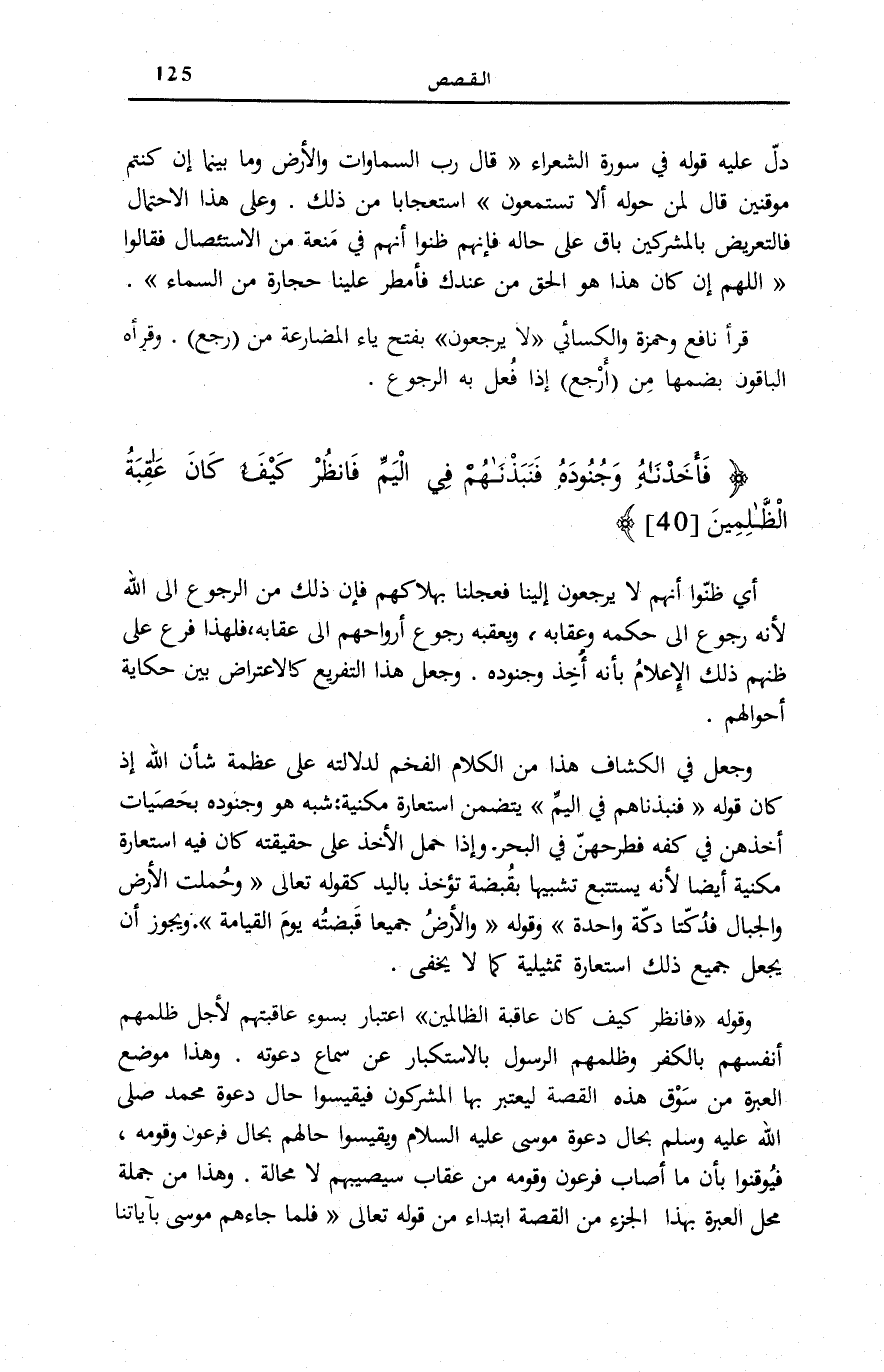 القصص 125
دلّ عليه قوله في سورة الشعراء « قال رب السماوات والأرض وما بينهما إن كنتم
موقنين قال لمن حوله ألا تستمعون » استعجابا من ذلك . وعلى هذا الاحتمال
فالتعريض بالمشركين باق على حاله فإنهم ظنوا أنهم في مَنعة من الاستئصال فقالوا
« اللهم إن كان هذا هو الحق من عندك فأمطر علينا حجارة من السماء » .
قرأ نافع وحمزة والكسائي «لا يرجعون» بفتح ياء المضارعة من (رجع) . وقرأه
الباقون بضمها مِن (أُرْجع) إذا فُعل به الرجوع .
﴿ فَأَخَذْنَـٰهُ وَجُنُودَهُ فَنَبَذْنَـٰهُمْ فِي الْيَمِّ فَانظُرْ كَيْفَ كَانَ عَـٰقِبَةُ
الظَّـٰلِمِينَ [40] ﴾
أي ظنّوا أنهم لا يرجعون إلينا فعجلنا بهلاكهم فإن ذلك من الرجوع الى الله
لأنه رجوع الى حكمه وعقابه ، ويعقبه رجوع أرواحهم الى عقابه،فلهذا فرع على
ظنهم ذلك الإعلامُ بأنه أُخِذ وجنوده . وجعل هذا التفريع كالاعتراض بين حكاية
أحوالهم .
وجعل في الكشاف هذا من الكلام الفخم لدلالته على عظمة شأن الله إذ
كان قوله « فنبذناهم في اليمِّ » يتضمن استعارة مكنية:شبه هو وجنوده بحَصَيات
أخذهن في كفه فطرحهنّ في البحر.وإذا حمل الأخذ على حقيقته كان فيه استعارة
مكنية أيضا لأنه يستتبع تشبيها بقُبضة تؤخذ باليد كقوله تعالى « وحُملت الأرض
والجبال فدُكّتا دكّة واحدة » وقوله « والأرضُ جميعا قَبضتُه يومَ القيامة ».ويجوز أن
يجعل جميع ذلك استعارة تمثيلية كما لا يخفى .
وقوله «فانظر كيف كان عاقبة الظالمين» اعتبار بسوء عاقبتهم لأجل ظلمهم
أنفسهم بالكفر وظلمهم الرسول بالاستكبار عن سماع دعوته . وهذا موضع
العبرة من سَوْق هذه القصة ليعتبر بها المشركون فيقيسوا حال دعوة محمد صلى
الله عليه وسلم بحال دعوة موسى عليه السلام ويقيسوا حالهم بحال فرعون وقومه ،
فيُوقنوا بأن ما أصاب فرعون وقومه من عقاب سيصيبهم لا محالة . وهذا من جملة
محل العبرة بهذا الجزء من القصة ابتداء من قوله تعالى « فلما جاءهم موسى بآياتنا